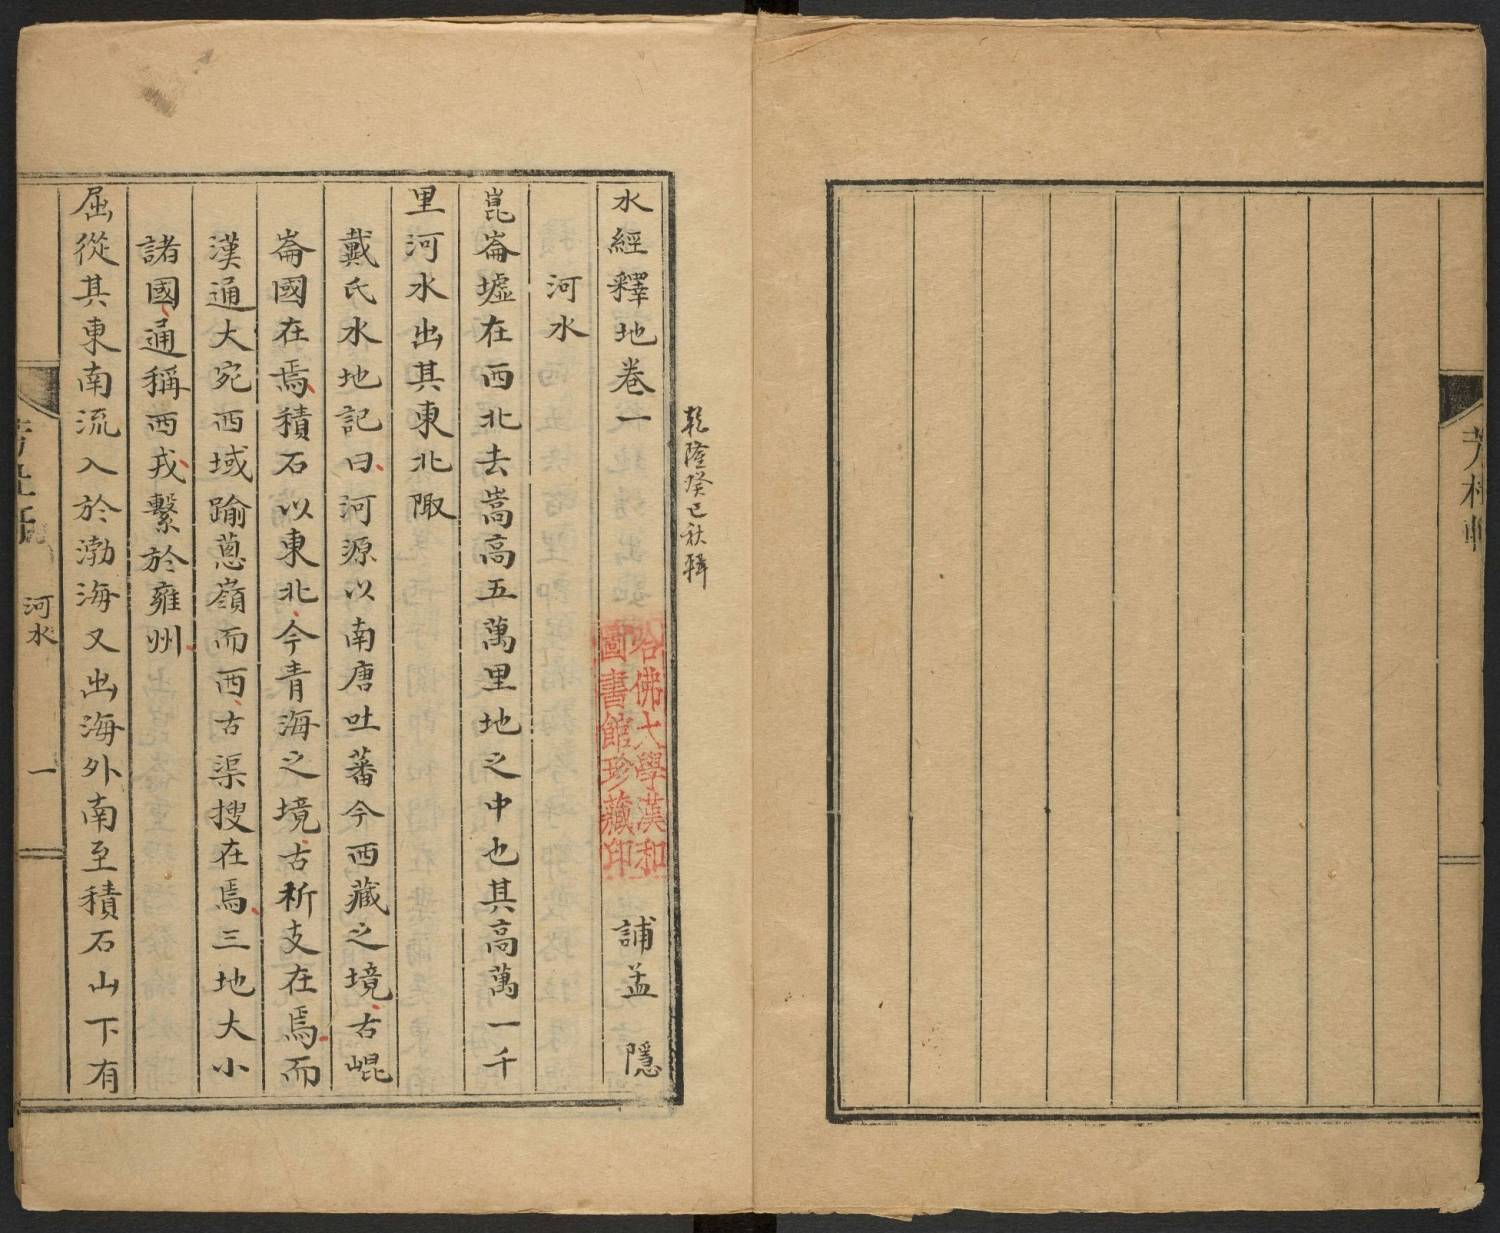 乾隆癸巳秋輯
水經釋地卷一 誧孟 隱
哈佛大學漢和
圖書館珍藏印
河水
崑崙墟在西北去嵩高五萬里地之中也其高萬一千
里河水出其東北陬
戴氏水地記曰河源以南唐吐蕃今西藏之境古崐
崙國在焉積石以東北今青海之境古析支在焉而
漢通大宛西域踰蔥嶺而西古渠搜在焉三地大小
諸國通稱西戎繫於雍州
屈從其東南流入於渤海又出海外南至積石山下有
河水
一